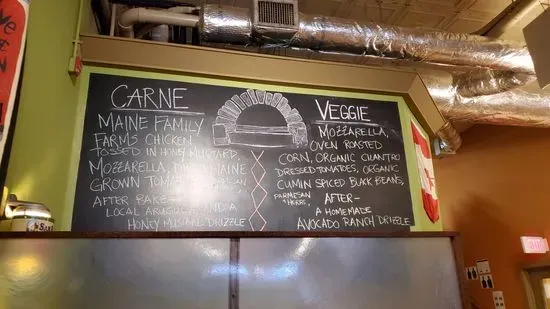 CARNE
MAINE FAMILY
FARMS CHICKEN
TOSSED IN HONEY MUSTARD,
MOZZARELLA, MAINE
GROWN
AFTER BAKE
LOCAL ARUGULA AND A
HONEY MUSTARD DRIZZLE
VEGGIE
MOZZARELLA,
OVEN ROASTED
CORN, ORGANIC CILANTRO
DRESSED TOMATOES, ORGANIC
CUMIN SPICED BLACK BEANS,
PARMESAN
& HERBS.
AFTER-
A HOMEMADE
AVOCADO RANCH DRIZZLE
EXIT